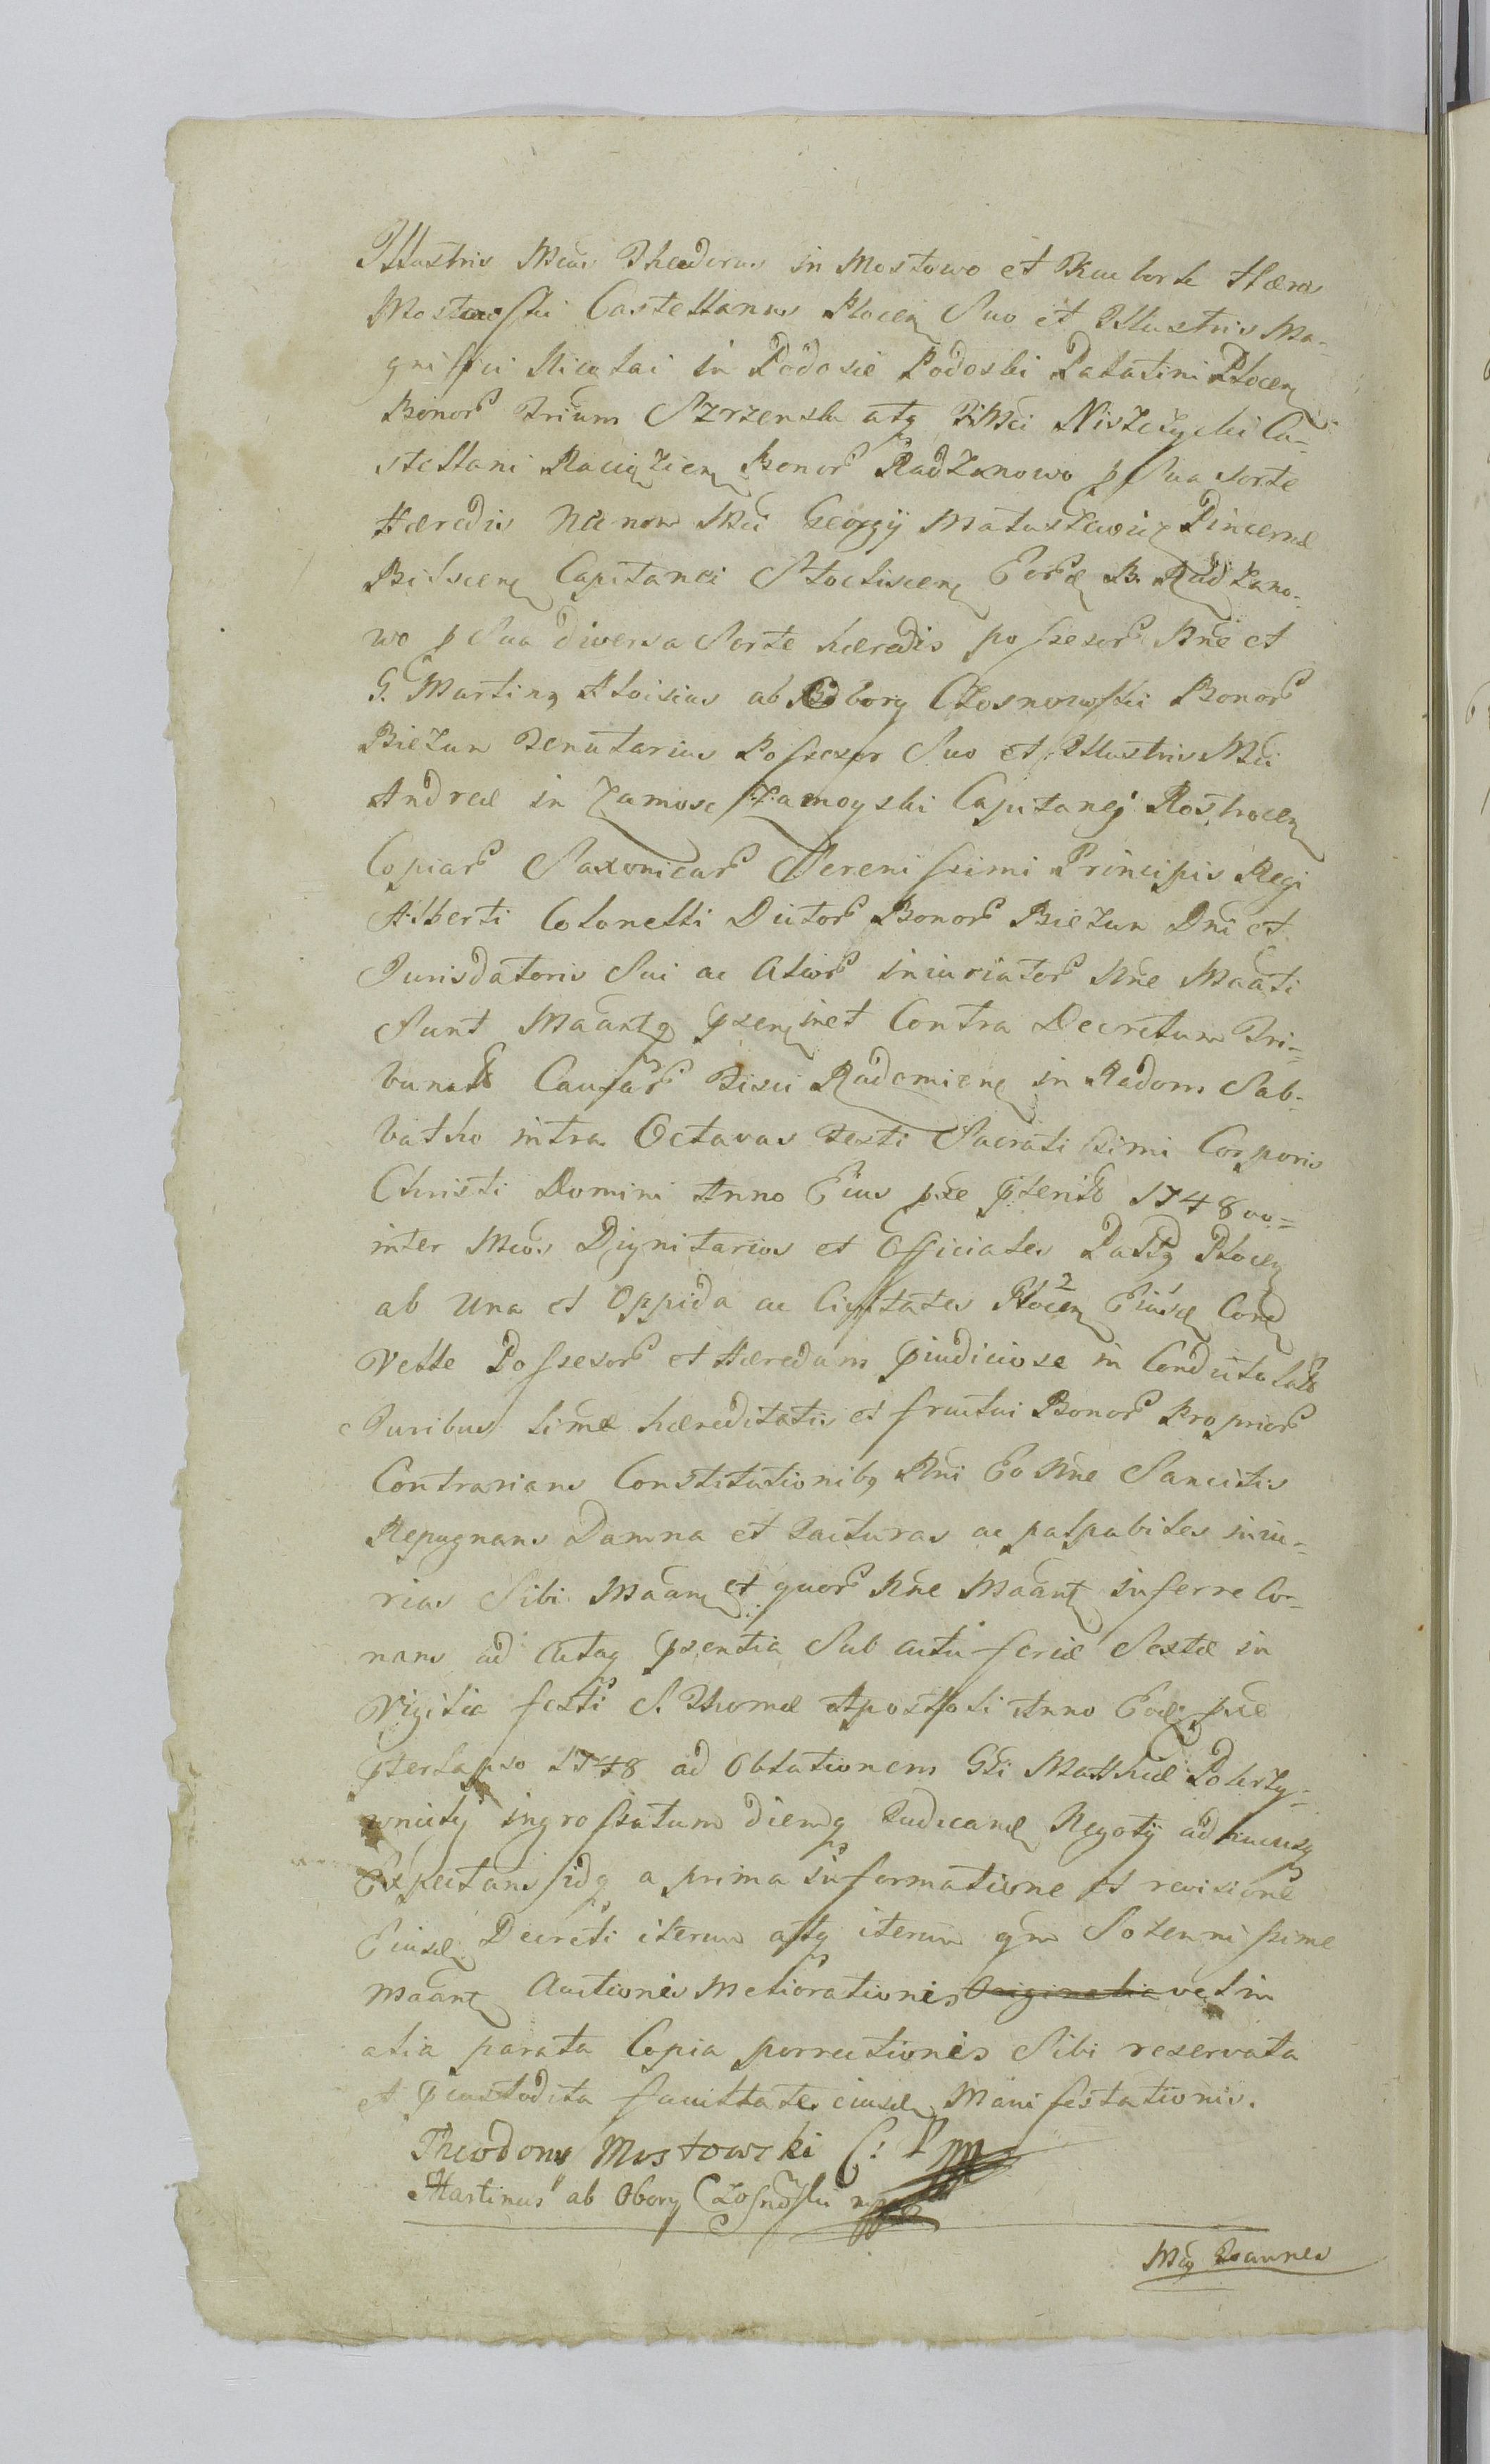 Illustris Mcus Theodorus in Mostowo et Raciborsk Hæres
Mostowski Castellanus Plocen Suo et Illustris Ma-
gnifici Nicolai in Podosie Podoski Palatini Plocen
Bonor Trium Szrzensk atq IMci Niszczycki Ca-
stellani Raciązien Bonor Radzanowo p Sua Sorte
Hæredis Nec non Mci Georgij Matuszewicz Pincernæ
Bilscen Capitanei Stoclisscen Eor B. Radzano-
wo p Sua diversa Sorte hæredis possesor Nne et
G. Martinq Aloisius ab Obory Czosnowski Bonor
Biezun Tenutarius Possessor Suo et Illustris Mci
Andreæ in Zamosc Zamoyski Capitanej Rosthocen
Copiar Saxonicar Serenissimi Principis Regi
Alberti Colonelli Dictor Bonor Biezun Dni et
Jurisdatoris Sui ac Alior iniuriator Nne Maati
Sunt Maantq pzen inet Contra Decretum Tri-
bunalis Causar Fisci Radomien in Radom Sab-
batho intra Octavas Festi Sacratissimi Corporis
Christi Domini Anno Eius pxe pterito 1748 vo=
inter Mcos Dignitarios et Officiales Palttq Plocen
ab Una et Oppida ac Civitates Plocen 2 Eiusd 1 Cond
Velle Possesor et Hæredum pjudiciose in Conductolatis
Juribus limæ hæreditatis et fructui Bonor Proprior
Contrarians Constitutionibq Rni Eo Nne Sancitis
Repugnans Damna et Jacturas ac palpabiles iniu-
rias Sibi Maan et quor Nne Maant inferre Co-
nans ad Actaq pzentia Sub actu feriæ Sextæ in
Vigilia festi S. Thomæ Apostoli Anno Eod pxe
pterlapso 1748 ad Oblationem Gsi Matthiæ Pokrzy-
wnicki ingrossatum diemq Judican Negotij adhucusq
Expectans idq a prima informatione et revisione
Eiusd Decreti iterum atq iterum qm Solennissime
maant Auctionis Meliorationis Originalis vel in
alia parata Copia porrectionis Sibi reservata
et pcustodita facultate eiusd Manifestationis.
Theodorus Mostowski C: P mp
Martinus ab Obory Czosnoski mp
Mcq Joannes